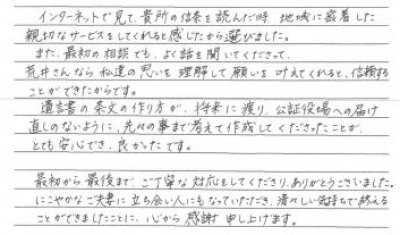 インターネットで見て、貴所の信条を読んだ時 地域に密着した
親切なサービスをしてくれると感じたから選びました。
また、最初の相談でも、よく話を聞いてくださって、
荒井さんなら私達の思いを理解して願いを叶えてくれると、信頼する
ことができたからです。
遺言書の条文の作り方が、将来に渡り、公証役場への届け
直しのないように、先々の事まで考えて作成してくださったことが、
とても安心でき、良かったです。
最初から最後まで、ご丁寧な対応をしてくださり、ありがとうございました。
にこやかなご夫妻に立ち会い人にもなっていただき、清々しい気持ちで終える
ことができましたことに、心から感謝申し上げます。